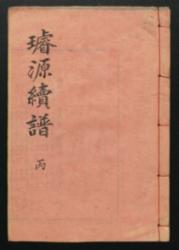 璿源續譜
丙